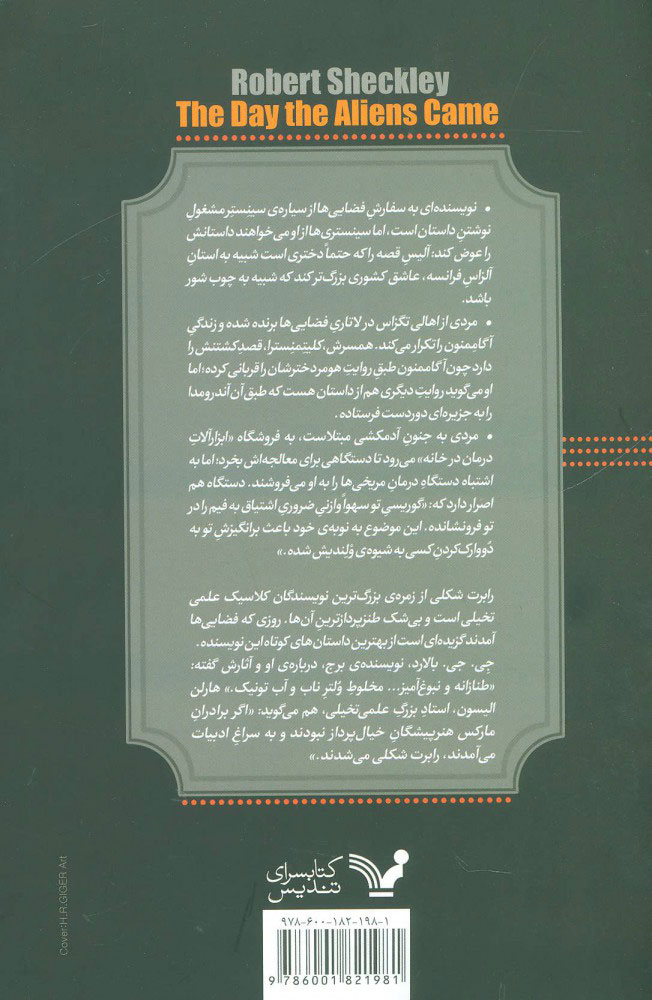 Robert Sheckley
The Day the Aliens Came
• نویسنده‌ای به سفارشِ فضایی‌ها از سیاره‌ی سینستِر مشغولِ
نوشتنِ داستان است، اما سینستری‌ها از او می‌خواهند داستانش
را عوض کند: آلیسِ قصه را که حتماً دختری است شبیه به استانِ
آلزاسِ فرانسه، عاشق کشوری بزرگ‌تر کند که شبیه به چوب شور
باشد.
• مردی از اهالی تگزاس در لاتاریِ فضایی‌ها برنده شده و زندگیِ
آگاممنون را تکرار می‌کند. همسرش، کلیتِمنِسترا، قصدِ کشتنش را
دارد چون آگاممنون طبقِ روایتِ هومر دخترشان را قربانی کرده؛ اما
او می‌گوید روایتِ دیگری هم از داستان هست که طبق آن آندرومدا
را به جزیره‌ای دوردست فرستاده.
• مردی به جنونِ آدمکشی مبتلاست، به فروشگاه «ابزارآلاتِ
درمان در خانه» می‌رود تا دستگاهی برای معالجه‌اش بخرد؛ اما به
اشتباه دستگاهِ درمانِ مریخی‌ها را به او می‌فروشند. دستگاه هم
اصرار دارد که: «گوریسیِ تو سهواً وازنیِ ضروریِ اشتیاق به فیم را در
تو فرونشانده. این موضوع به نوبه‌ی خود باعث برانگیزشِ تو به
دُووارک‌کردنِ کسی به شیوه‌ی وْلِندیش شده.»
رابرت شکلی از زمره‌ی بزرگ‌ترین نویسندگان کلاسیک علمی
تخیلی است و بی‌شک طنزپردازترینِ آن‌ها. روزی که فضایی‌ها
آمدند گزیده‌ای است از بهترین داستان‌های کوتاه این نویسنده.
جِی. جی. بالارد، نویسنده‌ی برج، درباره‌ی او و آثارش گفته:
«طنازانه و نبوغ‌آمیز... مخلوطِ وُلترِ ناب و آب تونیک.» هارلن
الیسون، استادِ بزرگِ علمی‌تخیلی، هم می‌گوید: «اگر برادرانِ
مارکس هنرپیشگانِ خیال‌پرداز نبودند و به سراغِ ادبیات
می‌آمدند، رابرت شکلی می‌شدند.»
Cover:H.R.GIGER Art
کتابسرای
تندیس
۹۷۸-۶۰۰-۱۸۲-۱۹۸-۱
9 786001 821981